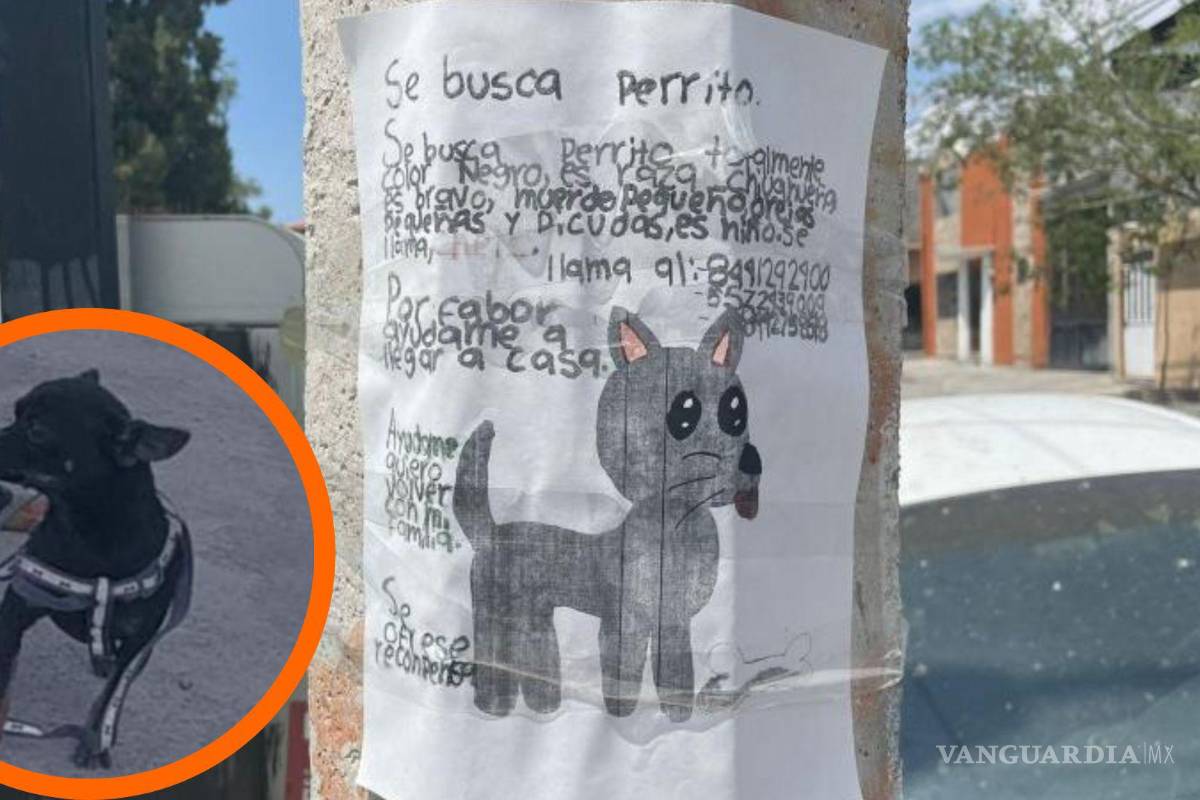 Se busca Perrito.
Se busca perrito totalmente
color Negro, es raza chihuahua
es bravo, muerde pequeño, orejas
pequeñas y picudas, es niño. se
llama,
llama al:- 8441292900
Por fabor
ayudame a
llegar a casa.
Ayudame
quiero
volver
con mi
familia.
Se
ofrese
recompensa
VANGUARDIA|MX